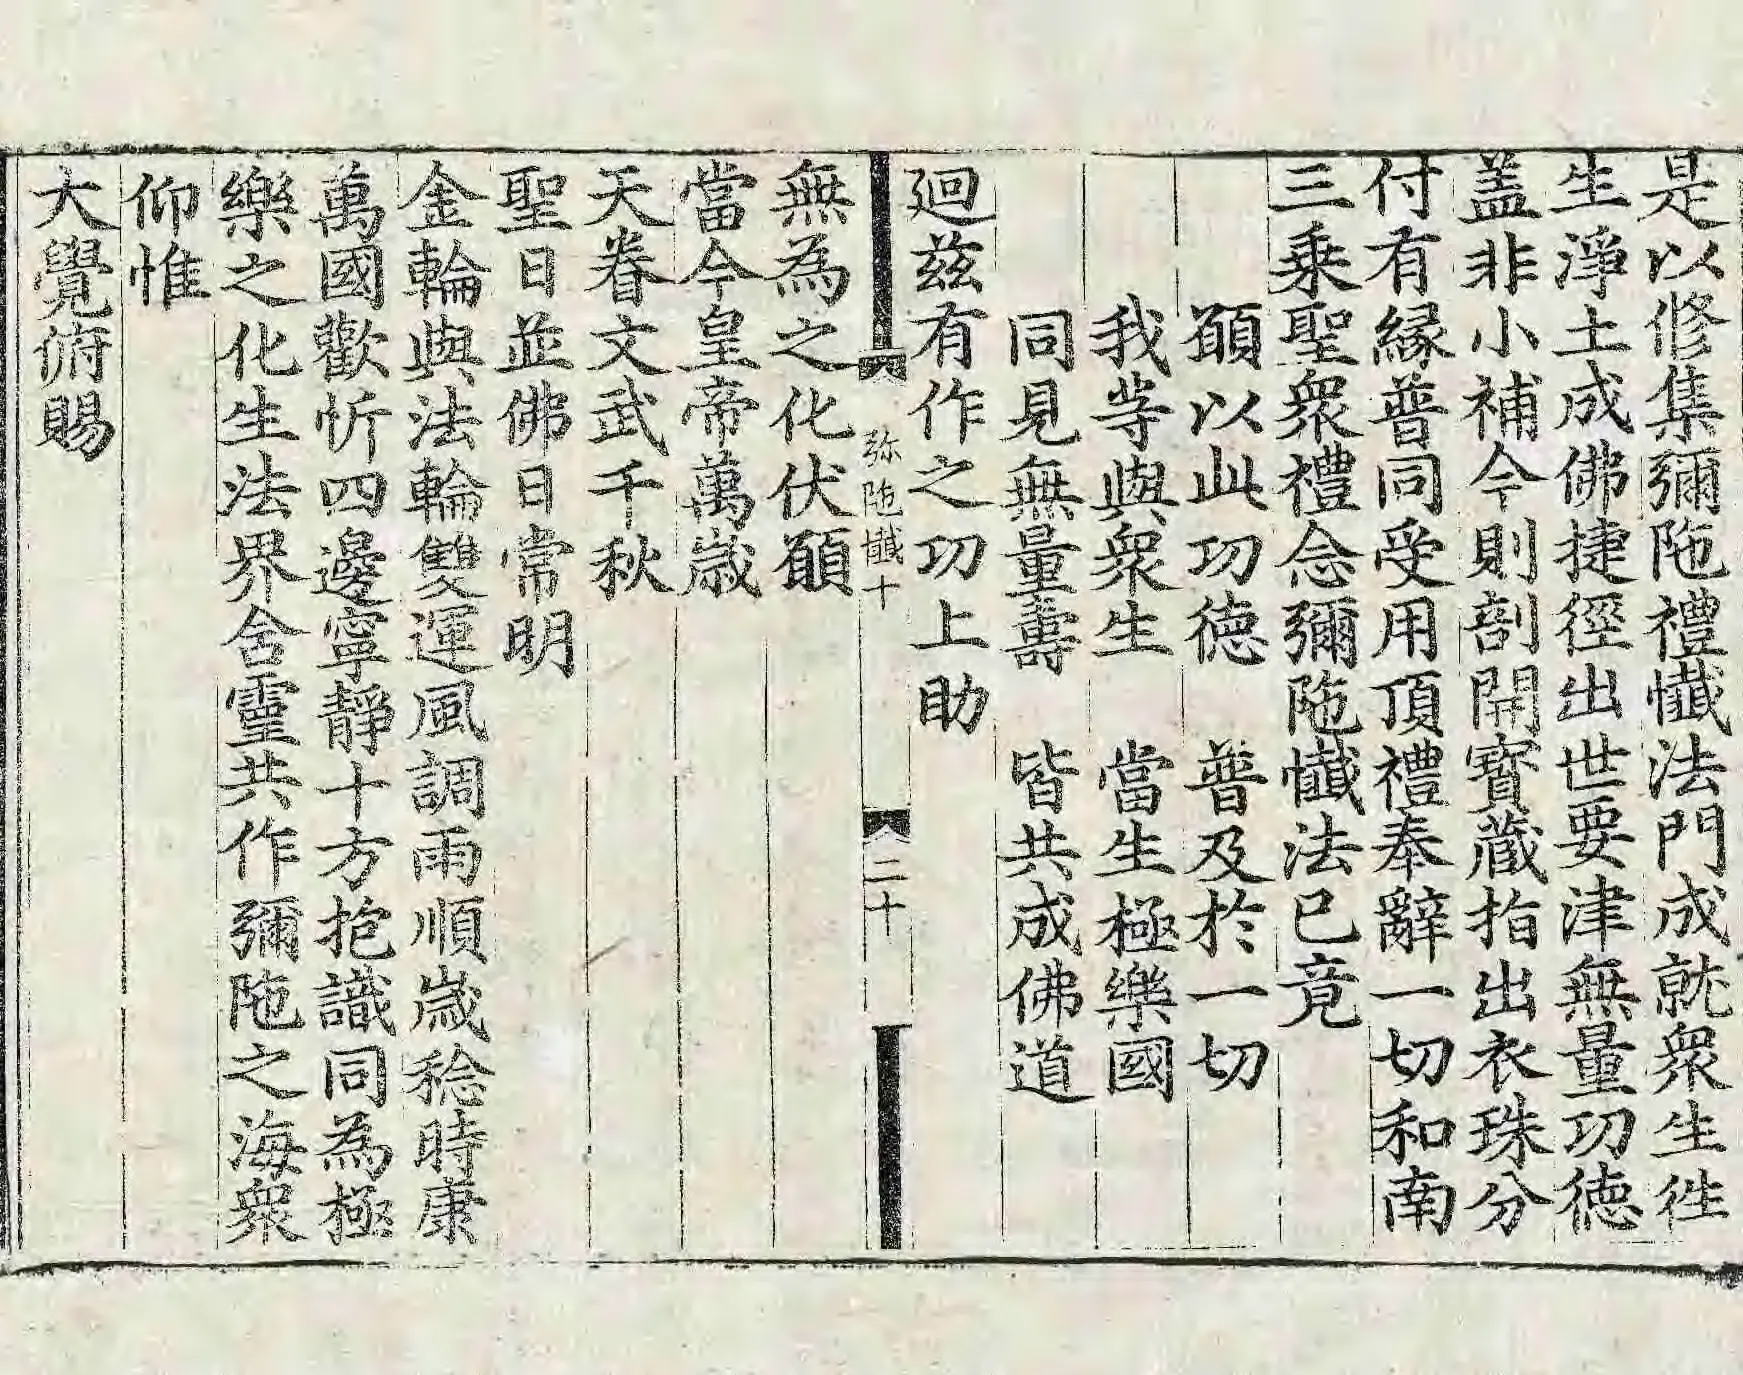 是以修集彌陁禮懴法門成就衆生徃
生淨土成佛捷徑出世要津無量功德
盖非小補今則剖開寳藏指出衣珠分
付有緣普同受用頂禮奉辭一切和南
三乗聖衆禮念彌陁懴法已竟
願以此功德　普及於一切
我等與衆生　當生極樂國
同見無量壽　皆共成佛道
廻兹有作之功上助
弥陁懴十
二十
無為之化伏願
當今皇帝萬歲
天眷文武千秋
聖日並佛日常明
金輪與法輪雙運風調雨順歲稔時康
萬國歡忻四邊寧靜十方抱識同為極
樂之化生法界含靈共作彌陁之海衆
仰惟
大覺俯賜